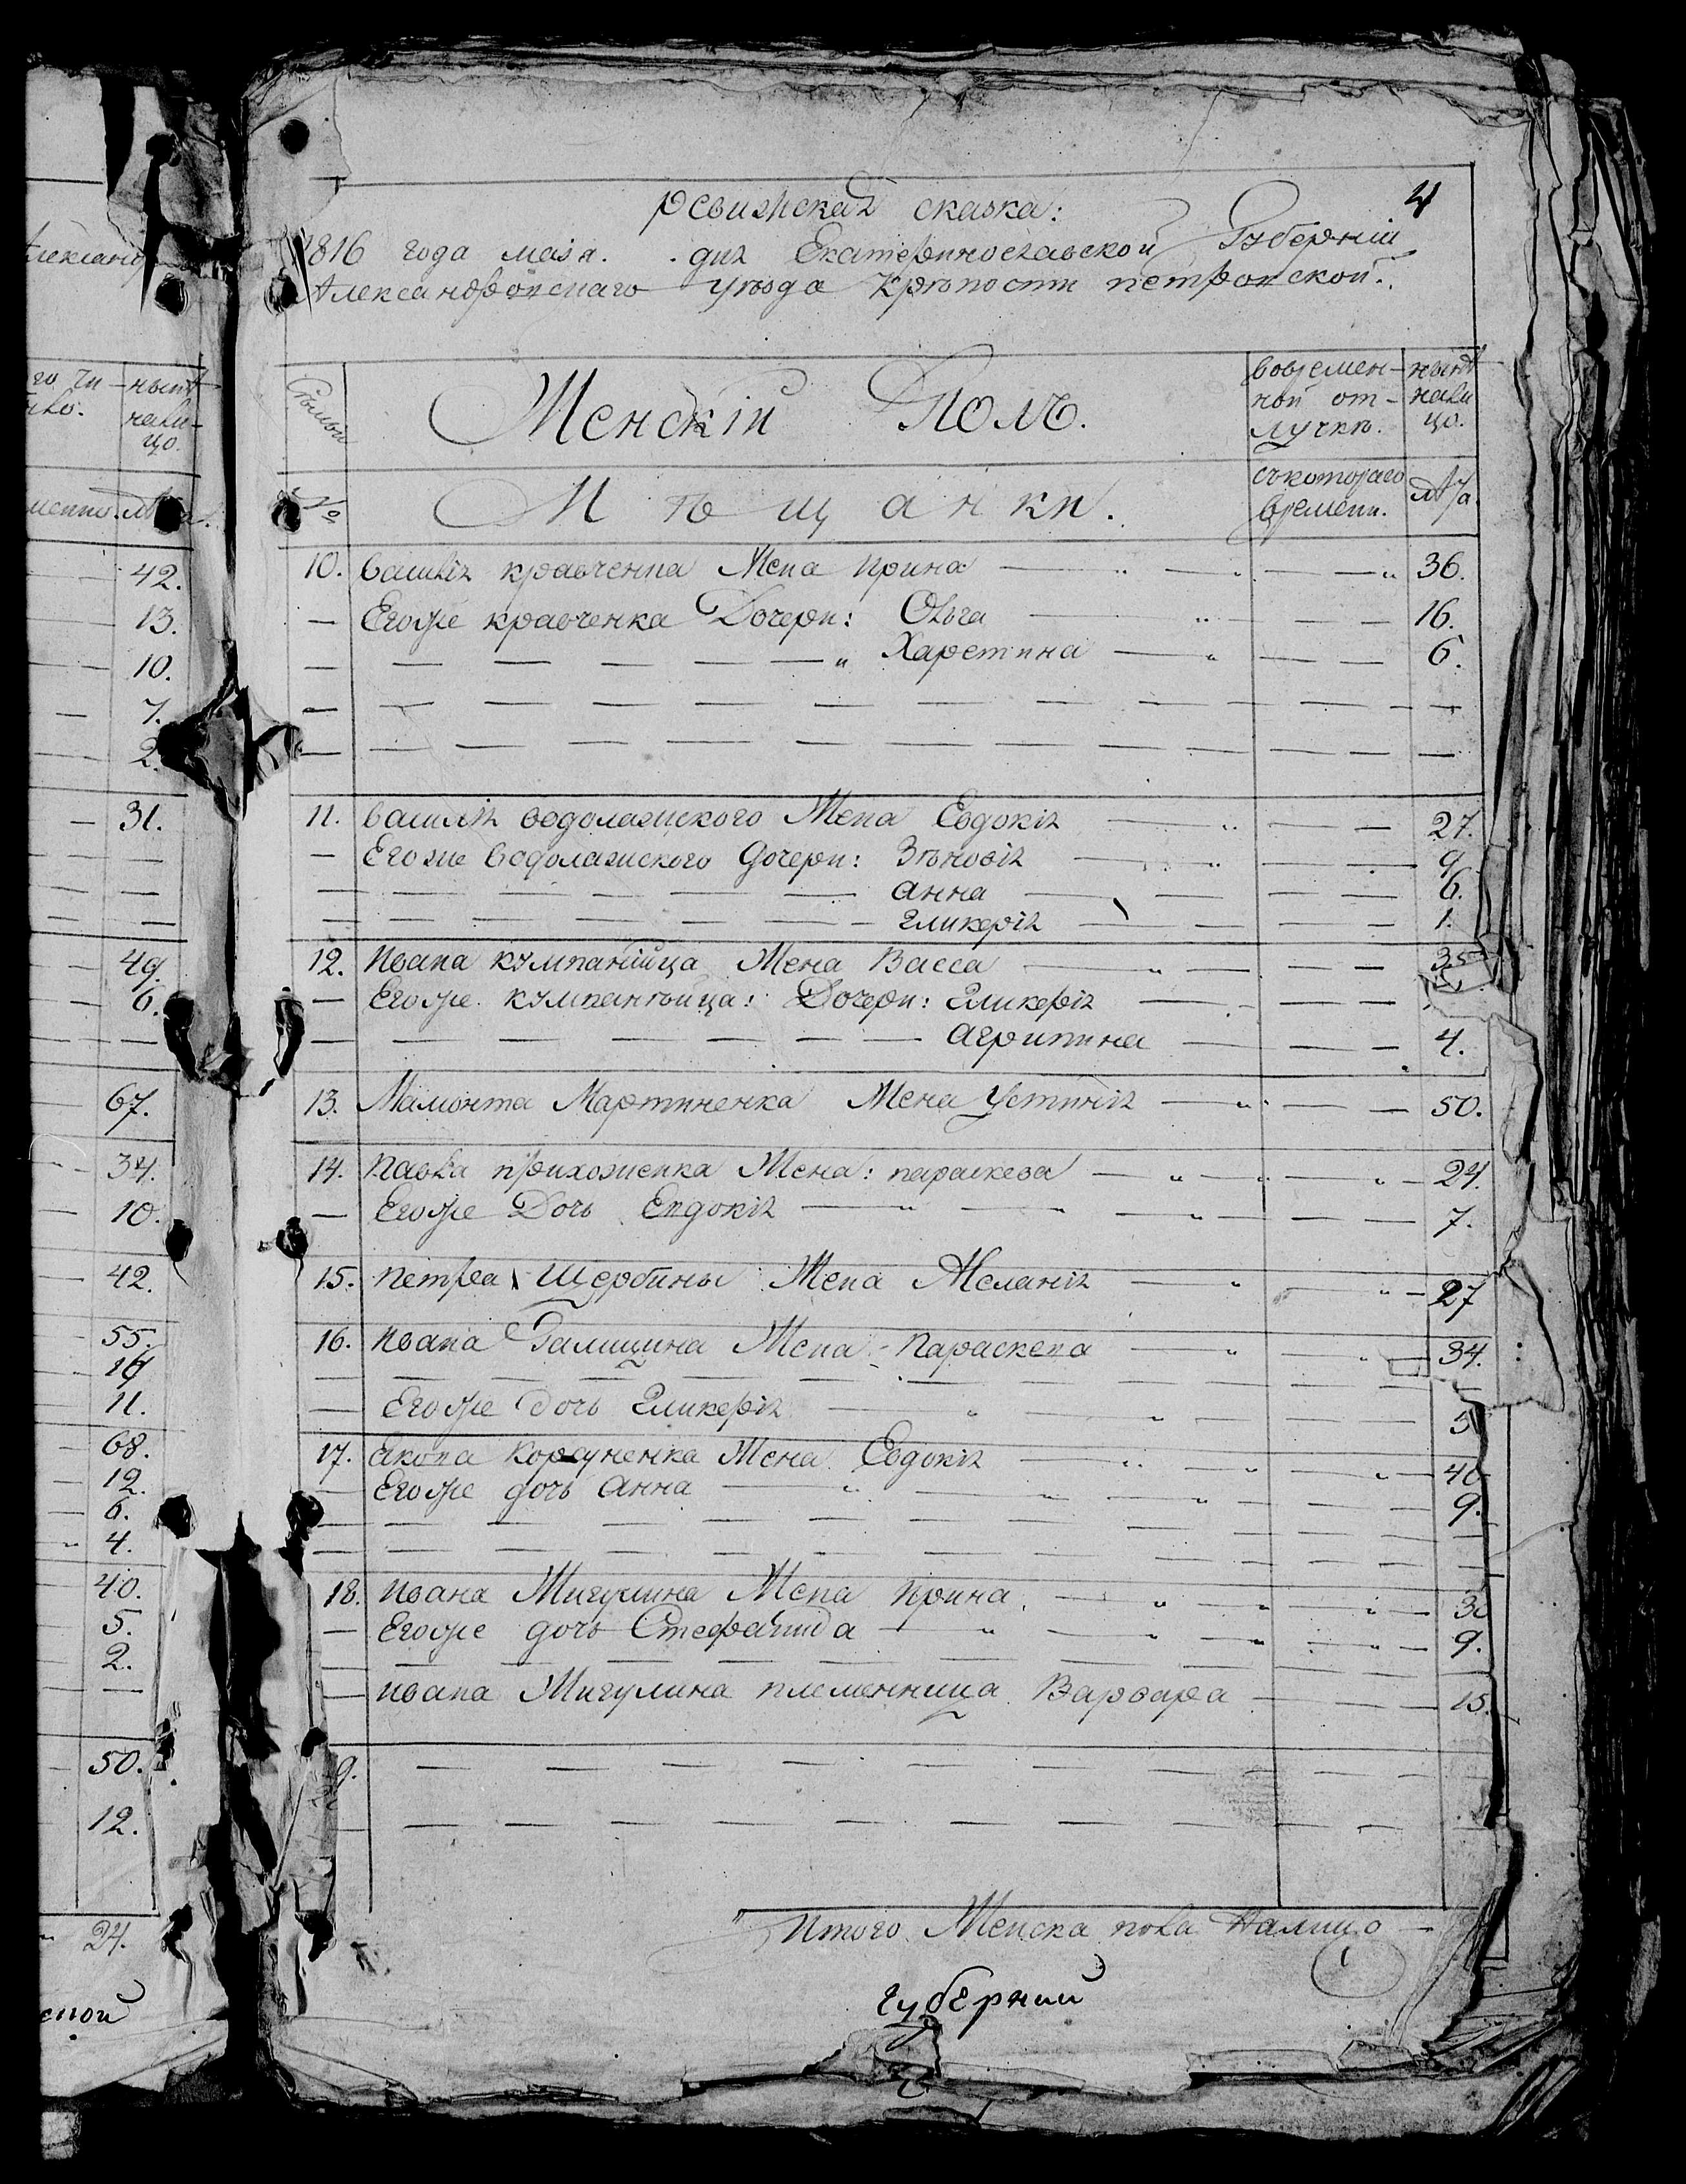 4
Ревижская сказка:
1816 года маія. . дня Екатеринославской Губерніи
Александровскаго уѣзда Крѣпости петровской.
Семьи
Женскій Полъ.
вовремен-
ной от-
лучкѣ.
нынѣ
нали
цо.
№
Мѣщанки.
съкотораго
времени.
лѣта.
10. Василія кравченка Жена Ирина — 36.
— Егоже кравченка Дочери: Ольга — 16.
— Харетина — 6.
11. Василія водолажского Жена Евдокія — 27.
— Егоже водолажского Дочери: Зѣновія — 9
— анна — 6.
— гликерія — 1.
12. Ивана кумпанійца Жена Васса — 35
— Егоже кумпанѣйца: Дочери: Гликерія —
— агрипина — 4.
13. Мамонта Мартиненка Жена Устинія — 50.
14. Павла прихоженка Жена: параскева — 24.
— Егоже Дочь Евдокія — 7.
15. Петра Щербины Жена Меланія — 27
16. Ивана Галицина Жена Параскева — 34.
— Егоже дочь Гликерія — 5
17. Якова Корсуненка Жена Евдокія — 40
— Егоже дочь анна — 9.
18. Ивана Мигулина Жена Ирина — 30
— Егоже дочь Стефанида — 9.
— Ивана Мигулина племенница Варвара — 15.
9.
Итого Женска пола Налицо —
губерний
Александ
го чи-
нынѣ
нали-
цо.
42.
13.
10.
7.
2.
31.
49.
6.
67.
34.
10.
42.
55.
19
11.
68.
12.
6.
4.
40.
5.
2.
50.
12.
24.